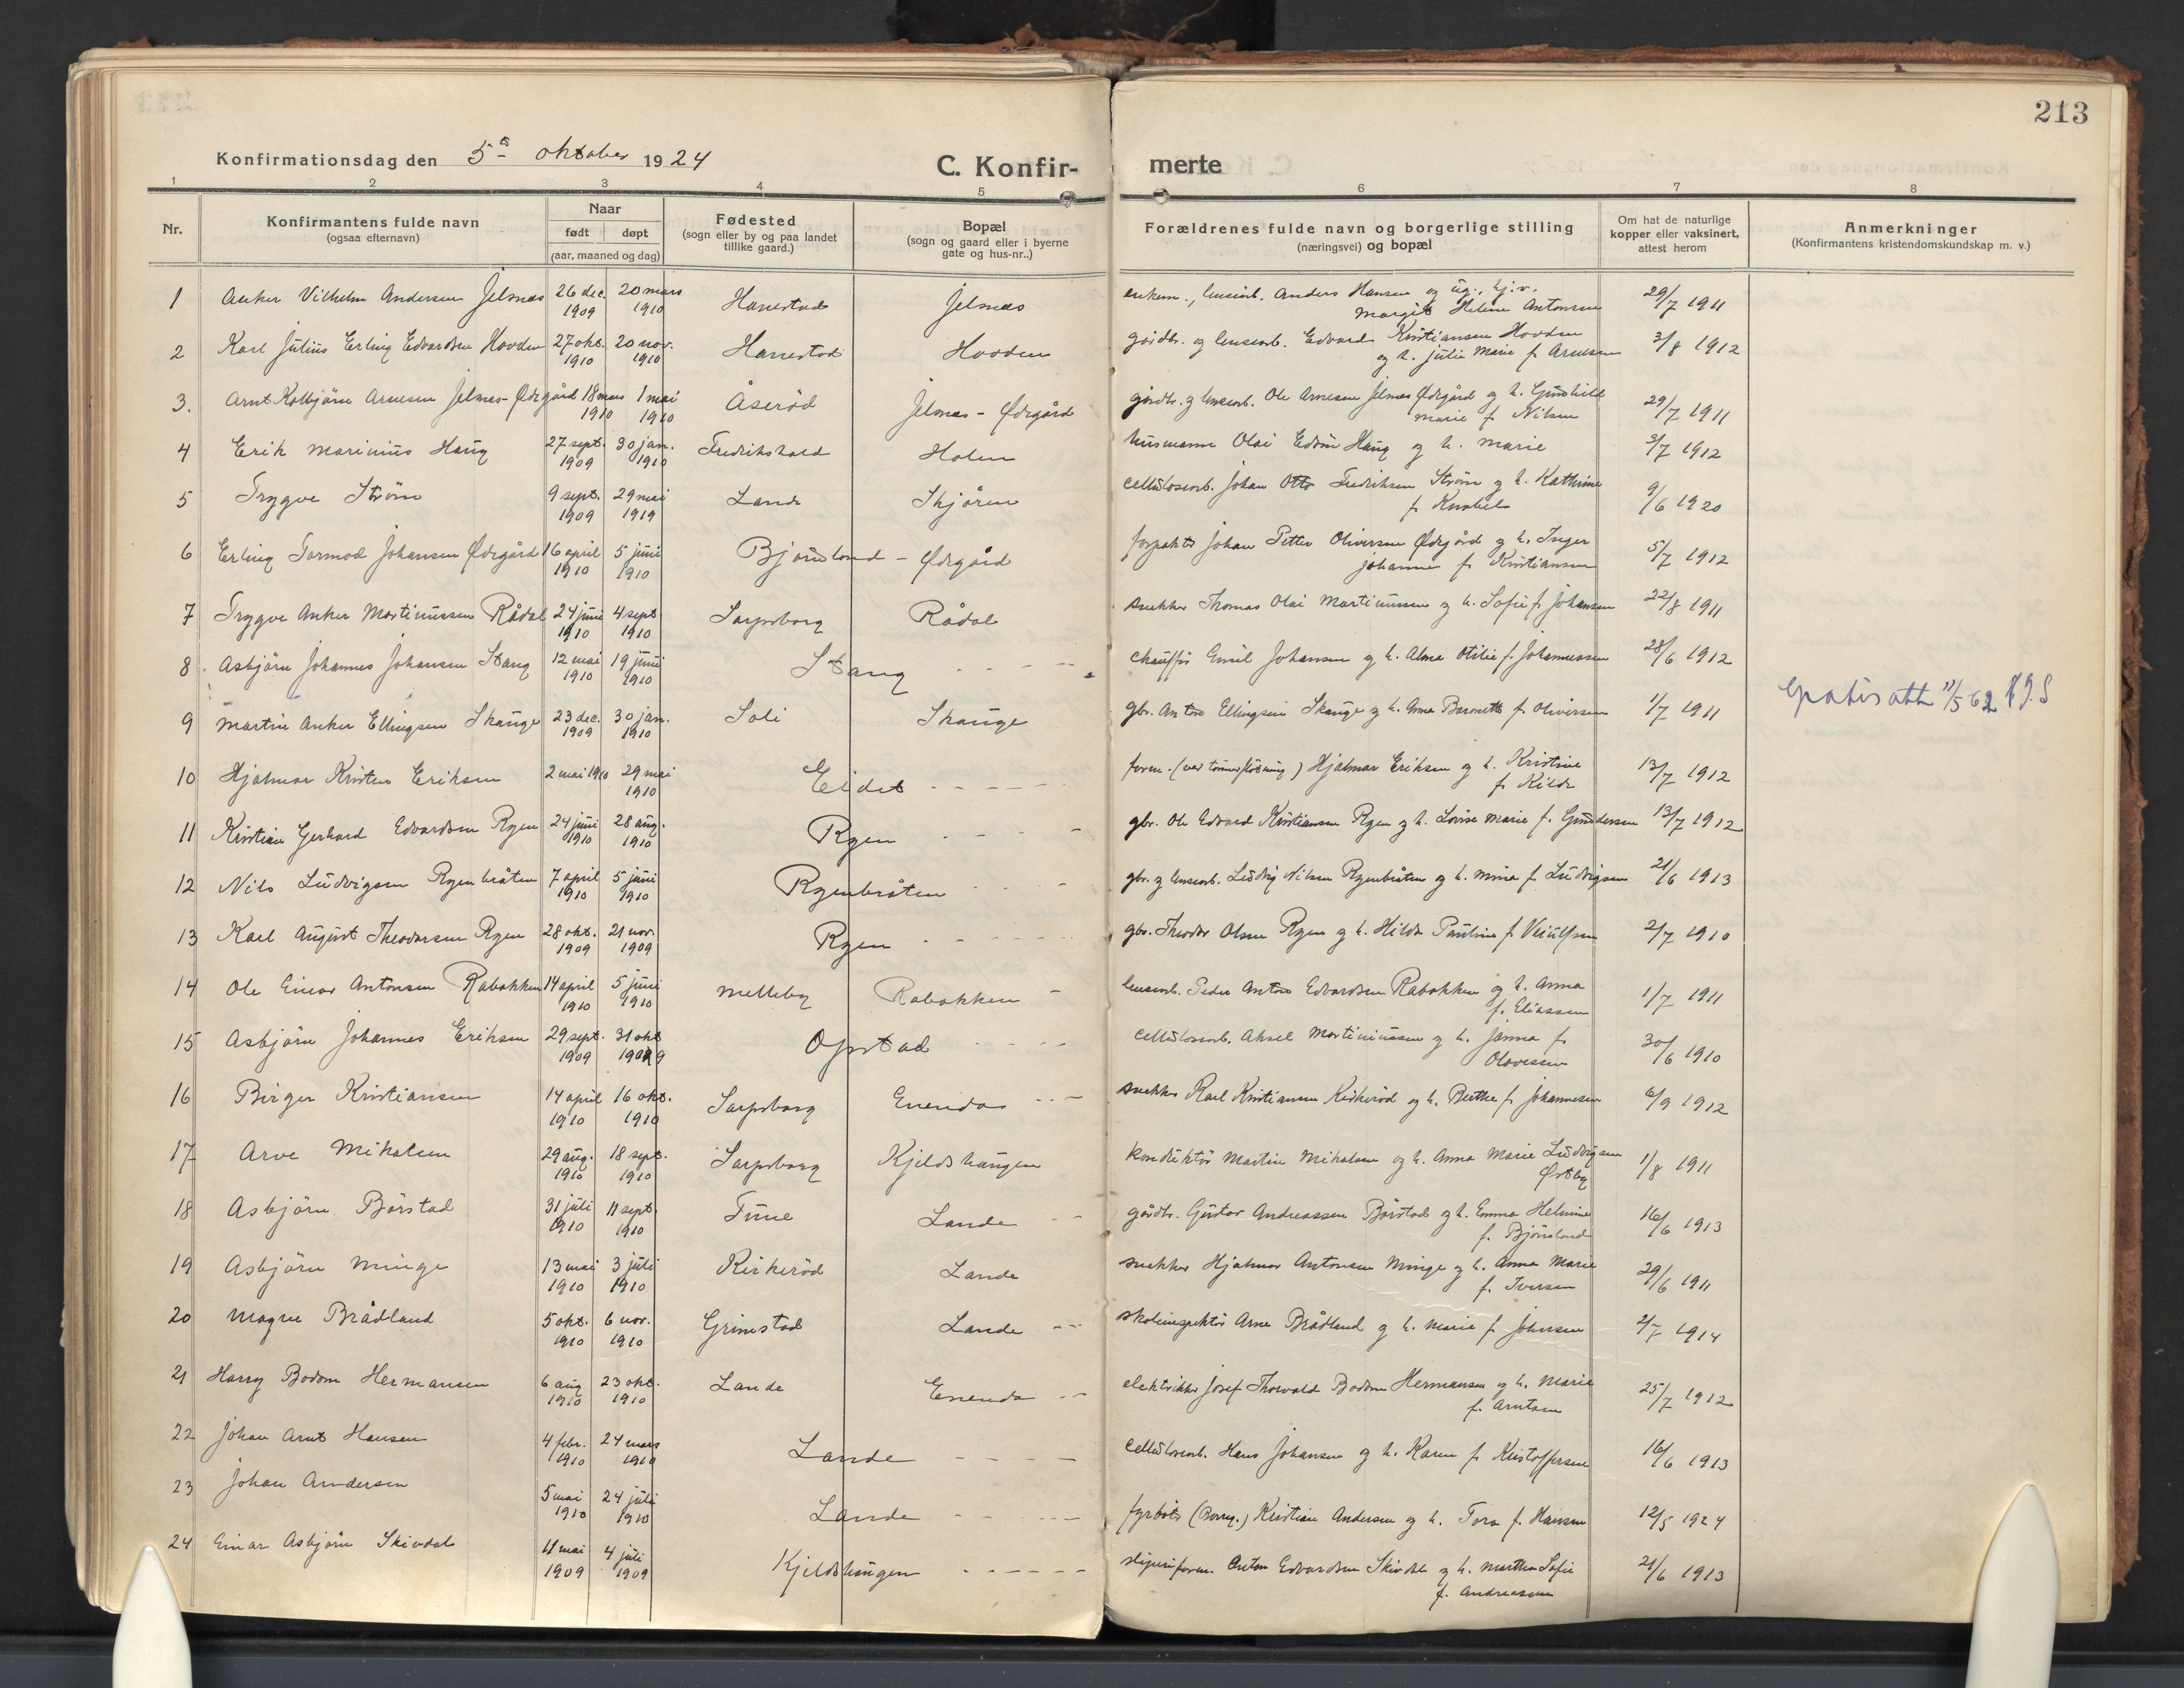 213
Konfirmationsdag den 5te oktober 1924
C. Konfir-merte
1 2 3 4 5 6 7 8
Nr. | Konfirmantens fulde navn (ogsaa efternavn) | Naar født | døpt (aar, maaned og dag) | Fødested (sogn eller by og paa landet tillike gaard.) | Bopæl (sogn og gaard eller i byerne gate og hus-nr..) | Forældrenes fulde navn og borgerlige stilling (næringsvei) og bopæl | Om hat de naturlige kopper eller vaksinert, attest herom | Anmerkninger (Konfirmantens kristendomskundskap m. v.)
1 Anker Vilhelm Andersen Jelsnæs 26 dec. 1909 20 mars 1910 Hanestad Jelsnæs enkem., Anders Hansen og Margit Helene Antonsen 29/7 1911
2 Karl Julius Erling Edvardsen Hovden 27 okt. 1910 20 nov. 1910 Hanestad Hovden gårdbr. og Edvard Kristiansen Hovden og h. Julie Marie f. Arnesen 3/8 1912
3. Arnt Kolbjörn Arnesen Jelsnæs-Ødegård 18 mars 1910 1 mai 1910 Åserød Jelsnæs - Ødegård gårdbr. og Ole Arnesen Jelsnæs Ødegård og h. Gunhild Marie f. Nilsen 29/7 1911
4 Erik Marinius Haug 27 sept. 1909 30 jan. 1910 Fredrikshald Holen husmann Olai Edvin Haug og h. Marie 2/7 1912
5 Trygve Ström 9 sept. 1909 29 mai 1919 Lande Skjören cellulosearb. Johan Otto Fredriksen Ström og h. Kathrine f. Knobel 9/6 1920
6 Erling Tormod Johansen Ødegård 16 april 1910 5 juni 1910 Bjørnland - Ødegård forpakter Johan Petter Oliversen Ødegård og h. Inger Johanne f. Kristiansen 5/7 1912
7 Trygve Anker Martinussen Rådal 24 juni 1910 4 sept 1910 Sarpsborg Rådal snekker Thomas Olai Martinussen og h. Sofie f. Johansen 22/8 1911
8 Asbjörn Johannes Johansen Stang 12 mai 1910 19 juni 1910 Stang - - - - chauffør Emil Johansen og h. Alma Otilie f. Johannessen 28/6 1912
9 Martin Anker Ellingsen Skauge 23 dec. 1909 30 jan. 1910 Soli Skauge gbr. Anton Ellingsen Skauge og h. Anna f. Oliversen 1/7 1911 Gratisatt 11/5 62
10 Hjalmar Kristen Eriksen 2 mai 1910 29 mai 1910 Eidet - - - - - form. (ved tømmerfløtning) Hjalmar Eriksen og h. Kristine f. Kilde 13/7 1912
11 Kristian Gerhard Edvardsen Rygen 24 juni 1910 28 aug. 1910 Rygen - - - gbr. Ole Edvard Kristiansen Rygen og h. Lovise Marie f. Gundersen 13/7 1912
12 Nils Ludvigsen Rygenbråten 7 april 1910 5 juni 1910 Rygenbråten - - - gbr. og Ludvig Nilsen Rygenbråten og h. Mina f. Ludvigsen 21/6 1913
13 Karl August Theodorsen Rygen 28 okt. 1909 21 nov. 1909 Rygen - - - - gbr. Theodor Olsen Rygen og h. Hilda Pauline f. 2/7 1910
14 Ole Einar Antonsen Rabakken 14 april 1910 5 juni 1910 Melleby Rabakken - Peder Anton Edvardsen Rabakken og h. Anna f. Eliassen 1/7 1911
15 Asbjörn Johannes Eriksen 29 sept. 1909 31 okt 1909 Opstad - - - - cellulosearb. Aksel Martiniussen og h. Janna f. Olavessen 30/6 1910
16 Birger Kristiansen 14 april 1910 16 okt. 1910 Sarpsborg Enenda - - - snekker Karl Kristiansen Kirkerød og h. Berthe f. Johannesen 6/9 1912
17 Arve Mikalsen 29 aug. 1910 18 sept. 1910 Sarpsborg Kjeldshaugen konduktør Martin Mikalsen og h. Anna Marie Ludvigsen Østby 1/8 1911
18 Asbjörn Börstad 31 juli 1910 11 sept. 1910 Tune Lande - - gårdbr. Gustav Andreassen Börstad og h. Emma Helmine f. Bjørnland 16/6 1913
19 Asbjörn Minge 13 mai 1910 3 juli 1910 Kirkeröd Lande snekker Hjalmar Antonsen Minge og h. Anna Marie f. Iversen 29/6 1911
20 Magne Brådland 5 okt. 1910 6 nov. 1910 Grimstad Lande - - - skoleinspektör Arne Brådland og h. Marie f. Johnsen 2/7 1914
21 Harry Bodom Hermansen 6 aug 1910 23 okt. 1910 Lande Enenda - - elektriker Josef Thorvald Bodom Hermansen og h. Marie f. Arntsen 25/7 1912
22 Johan Arnt Hansen 4 febr. 1910 24 mars 1910 Lande - - - - cellulosearb. Hans Johansen og h. Karen f. Kristoffersen 16/6 1913
23 Johan Andersen 5 mai 1910 24 juli 1910 Lande - - - - fyrböter (Borreg.) Kristian Andersen og h. Tora f. Hansen 12/5 1924
24 Einar Asbjörn Skivdal 11 mai 1909 4 juli 1909 Kjeldshaugen - - - - - sliperiform. Anton Edvardsen Skivdal og h. Marthe Sofie f. Andreassen 21/6 1913